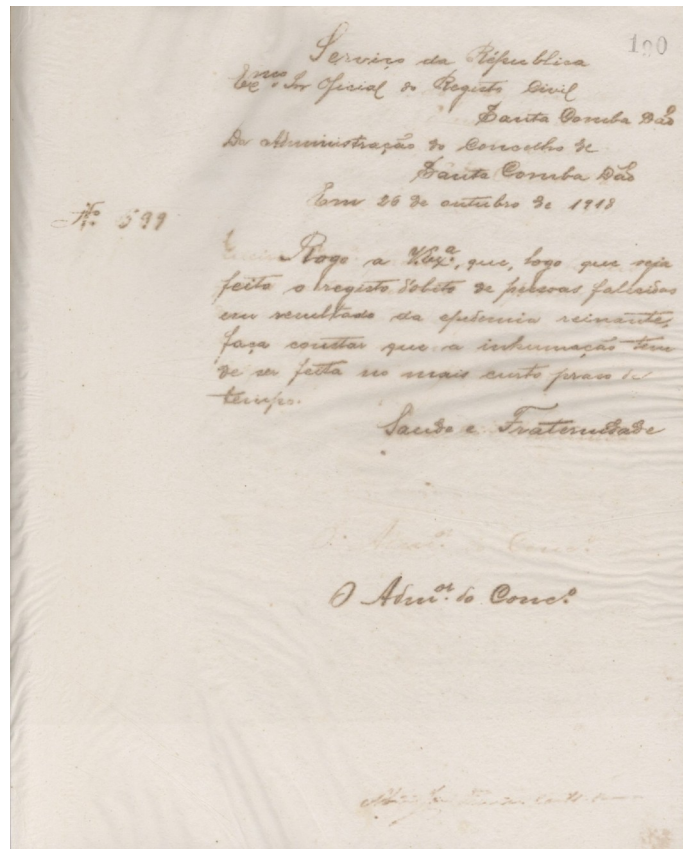 100
Serviço da Républica
Exmo. Snr Oficial do Registo Civil
Santa Comba Dão
Da Administração do Concelho de
Santa Comba Dão
Em 26 de outubro de 1918
No. 599
Rogo a V.Exª, que, logo que seja
feito o registo dobito de pessoas falecidas
em resultado da epidemia reinante,
faça constar que a inhumação tem
de ser feita no mais curto praso de
tempo.
Saude e Fraternidade
O Admor. do Conc.o